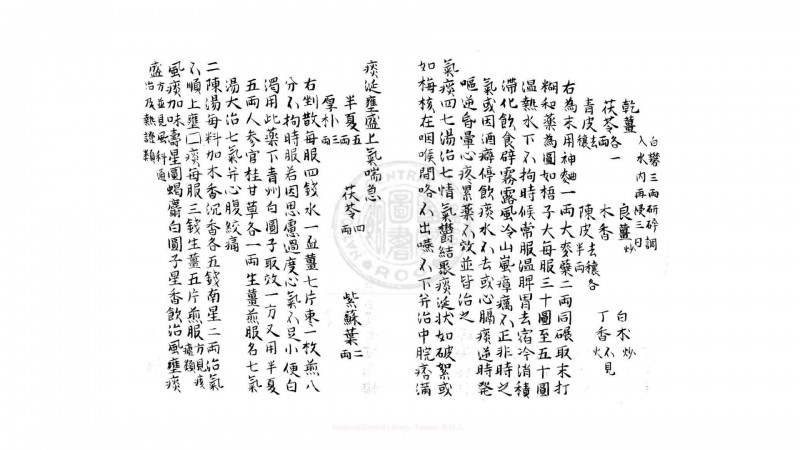 白礬三兩研碎調
入水內再浸三日
乾薑 良薑炒 白朮炒
茯苓各一兩 木香 丁香不見火
青皮去穰 陳皮去穰各半兩
右為末用神麯一兩大麥蘖二兩同碾取末打
糊和藥為圓如梧子大每服三十圓至五十圓
溫熱水下不拘時候常服溫脾胃去宿冷消積
滯化飲食辟霧露風冷山嵐瘴癘不正非時之
氣或因酒癖停飲痰水不去或心膈痰逆時發
嘔逆昏暈心疼累藥不效並皆治之
氣痰四七湯治七情氣鬱結聚痰涎狀如破絮或
如梅核在咽喉間咯不出嚥不下并治中脘痞滿
痰涎壅盛上氣喘急
半夏五兩 茯苓四兩 紫蘇葉二兩
厚朴三兩
右剉散每服四錢水一盃薑七片棗一枚煎八
分不拘時服若因思慮過度心氣不足小便白
濁用此藥下青州白圓子取效一方又用半夏
五兩人參官桂甘草各一兩生薑煎服名七氣
湯大治七氣并心腹絞痛
二陳湯每料加木香沉香各五錢南星二兩治氣
不順上壅痰每服三錢生薑五片煎服方見痰瘧類
風痰加味壽星圓蝎麝白圓子星香飲治風壅痰
盛方並見風科通治及熱證類